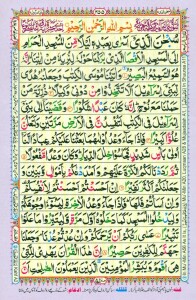 بِسْمِ اللهِ الرَّحْمٰنِ الرَّحِیْمِ
سُبْحٰنَ الَّذِیْۤ اَسْرٰی بِعَبْدِهٖ لَیْلًا مِّنَ الْمَسْجِدِ الْحَرَامِ
اِلَی الْمَسْجِدِ الْاَقْصَا الَّذِیْ بٰرَكْنَا حَوْلَهٗ لِنُرِیَهٗ مِنْ اٰیٰتِنَا اِنَّهٗ
هُوَ السَّمِیْعُ الْبَصِیْرُ وَاٰتَیْنَا مُوْسَی الْكِتٰبَ وَجَعَلْنٰهُ هُدًی
لِّبَنِیْۤ اِسْرَآءِیْلَ اَلَّا تَتَّخِذُوْا مِنْ دُوْنِیْ وَكِیْلًا ذُرِّیَّةَ مَنْ
حَمَلْنَا مَعَ نُوْحٍ اِنَّهٗ كَانَ عَبْدًا شَكُوْرًا وَقَضَیْنَاۤ اِلٰی بَنِیْۤ
اِسْرَآءِیْلَ فِی الْكِتٰبِ لَتُفْسِدُنَّ فِی الْاَرْضِ مَرَّتَیْنِ وَلَتَعْلُنَّ
عُلُوًّا كَبِیْرًا فَاِذَا جَآءَ وَعْدُ اُوْلٰىهُمَا بَعَثْنَا عَلَیْكُمْ عِبَادًا لَّنَاۤ
اُولِیْ بَاْسٍ شَدِیْدٍ فَجَاسُوْا خِلٰلَ الدِّیَارِ وَكَانَ وَعْدًا مَّفْعُوْلًا
ثُمَّ رَدَدْنَا لَكُمُ الْكَرَّةَ عَلَیْهِمْ وَاَمْدَدْنٰكُمْ بِاَمْوَالٍ وَّبَنِیْنَ
وَجَعَلْنٰكُمْ اَكْثَرَ نَفِیْرًا اِنْ اَحْسَنْتُمْ اَحْسَنْتُمْ لِاَنْفُسِكُمْ
وَاِنْ اَسَاْتُمْ فَلَهَا فَاِذَا جَآءَ وَعْدُ الْاٰخِرَةِ لِیَسُوْٓءٗا وُجُوْهَكُمْ
وَلِیَدْخُلُوا الْمَسْجِدَ كَمَا دَخَلُوْهُ اَوَّلَ مَرَّةٍ وَّلِیُتَبِّرُوْا مَا عَلَوْا
تَتْبِیْرًا عَسٰی رَبُّكُمْ اَنْ یَّرْحَمَكُمْ وَاِنْ عُدْتُّمْ عُدْنَا وَجَعَلْنَا
جَهَنَّمَ لِلْكٰفِرِیْنَ حَصِیْرًا اِنَّ هٰذَا الْقُرْاٰنَ یَهْدِیْ لِلَّتِیْ هِیَ
اَقْوَمُ وَیُبَشِّرُ الْمُؤْمِنِیْنَ الَّذِیْنَ یَعْمَلُوْنَ الصّٰلِحٰتِ